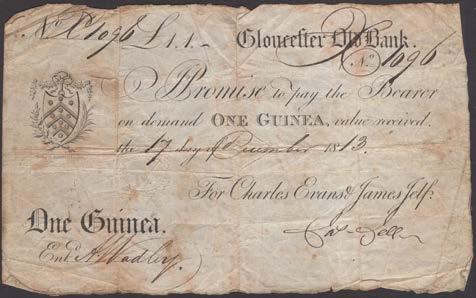 No. 1096 £1.1.- Gloucester Old Bank.
No. 1096
I Promise to pay the Bearer
on demand ONE GUINEA, value received.
the 17 day of December 1813.
For Charles Evans & James Jelf:
Jas. Jelf
One Guinea.
Entd. A Wadley.